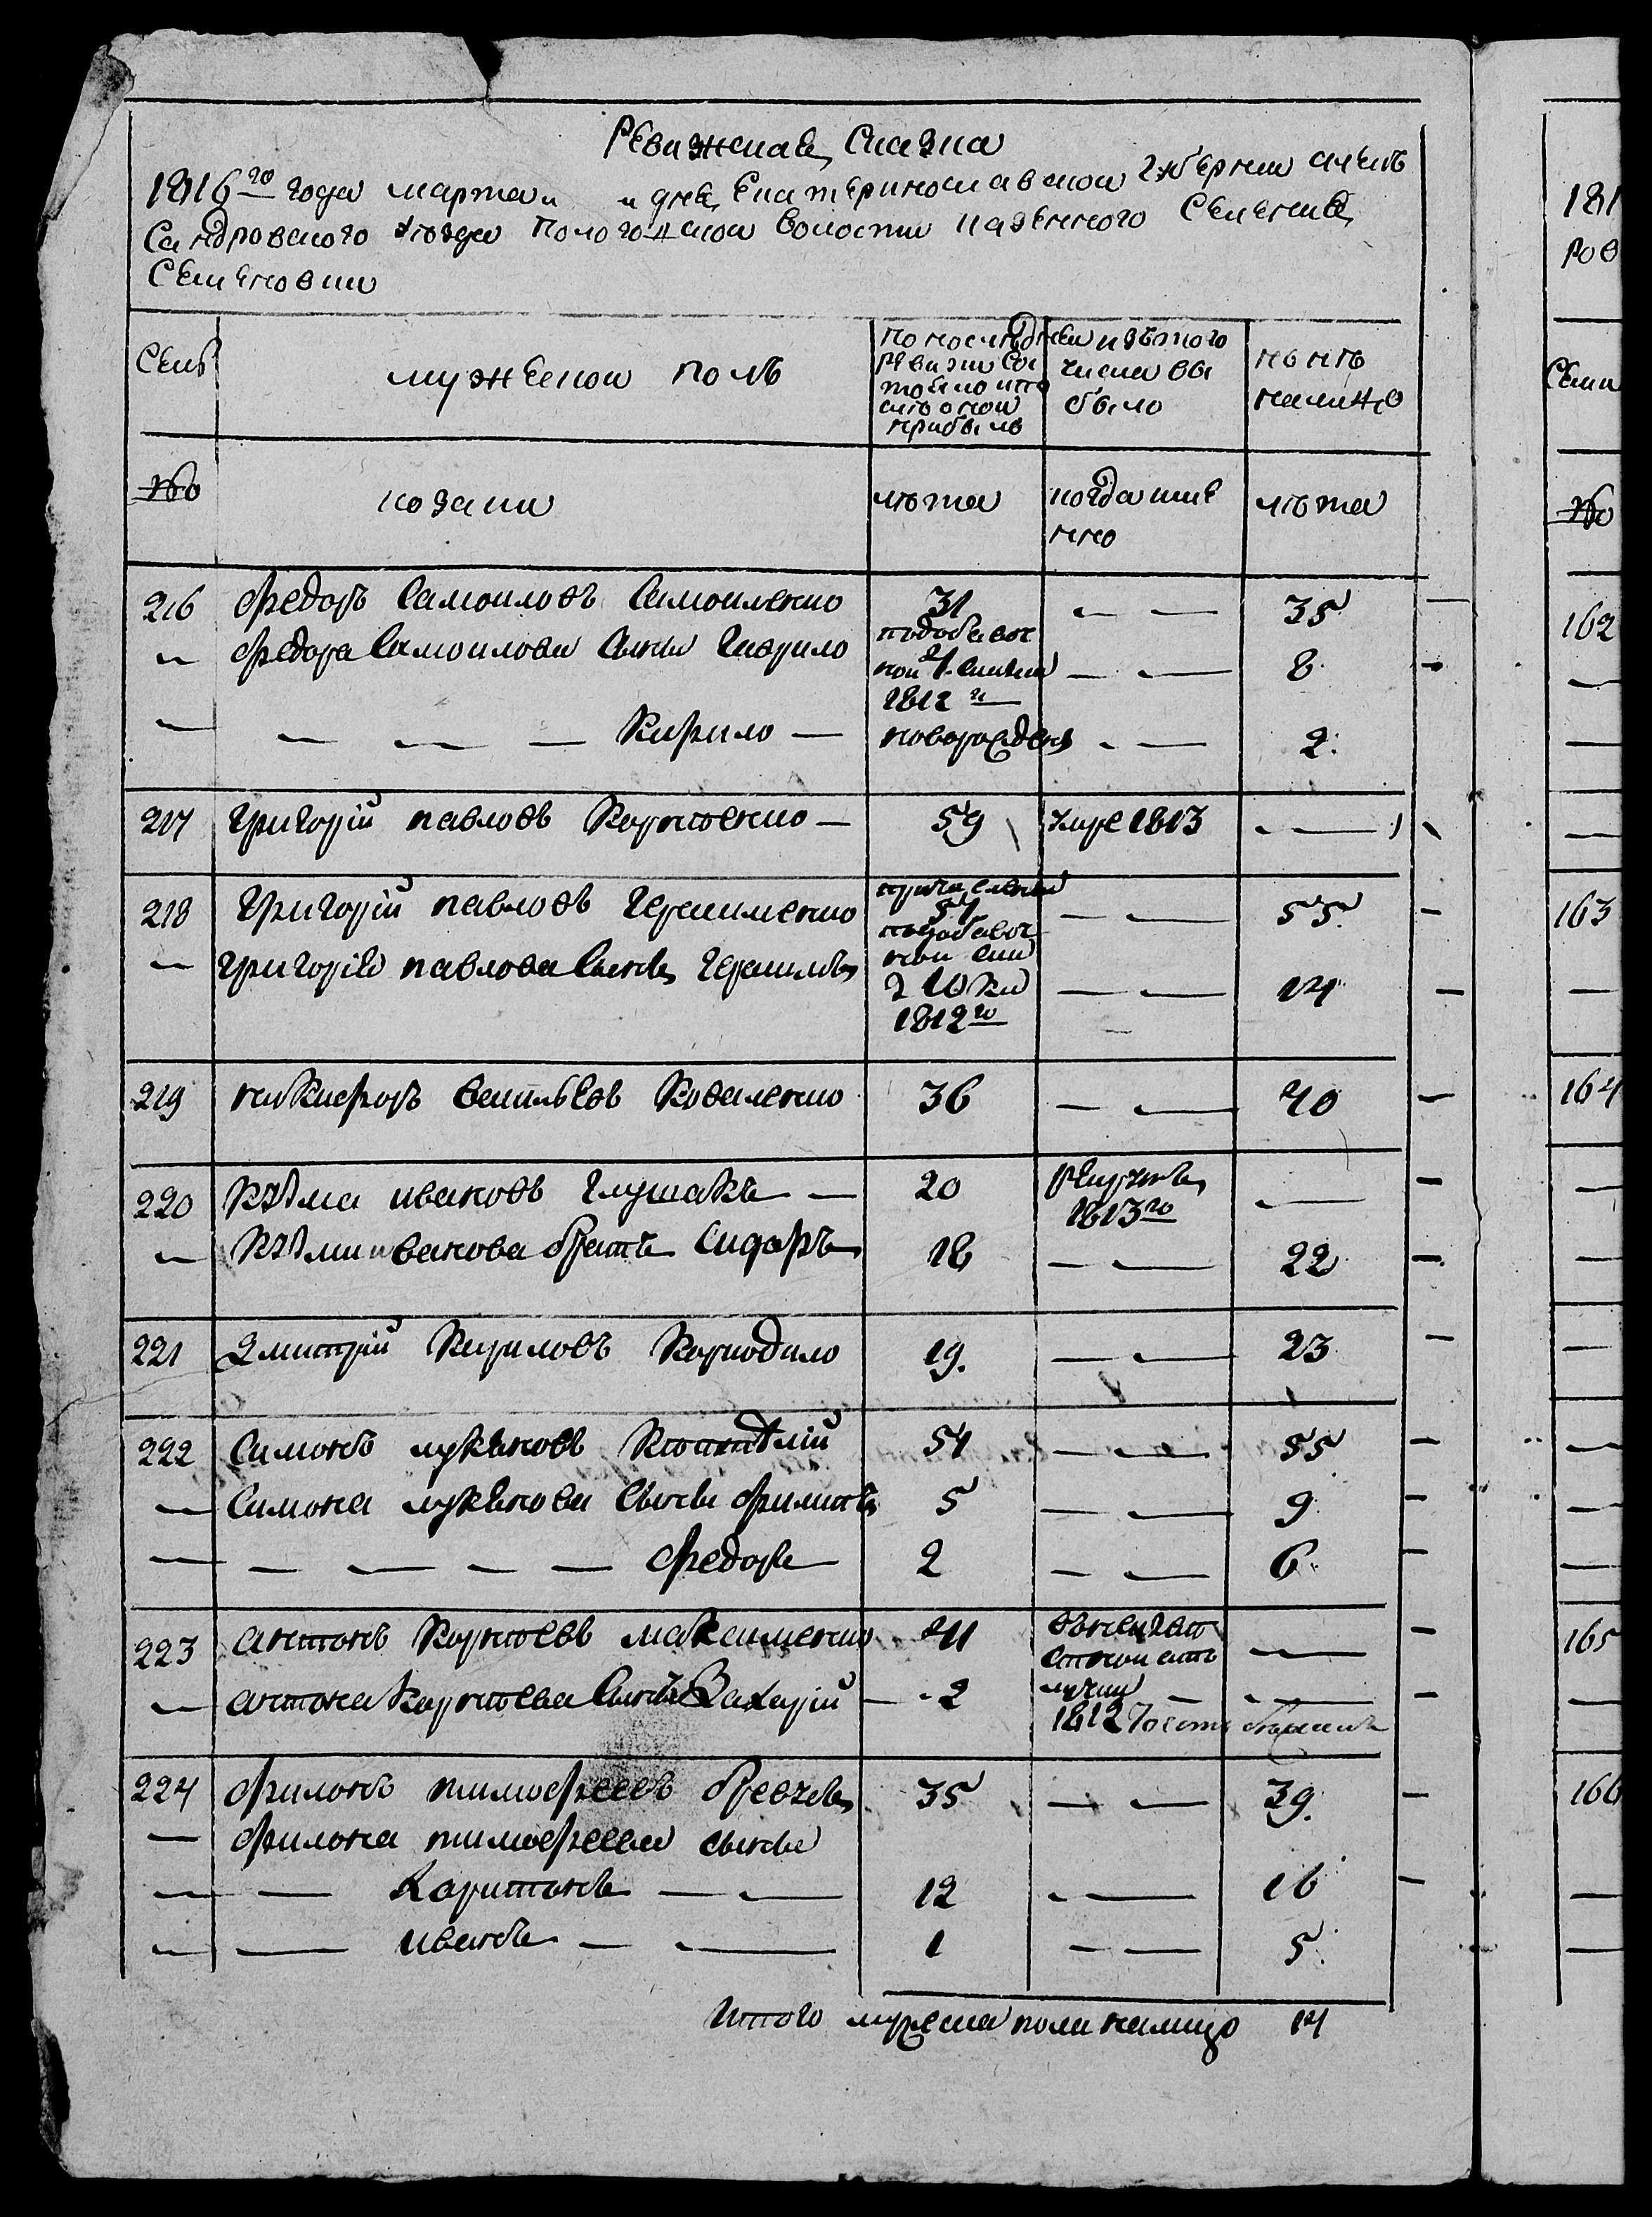 Ревижская Сказка
1816го года марта „ „ дня Екатеринославской губернии Алек
Сандровского уезда Пологовской волости казенного Селения
Семеновки
Семьи
мужеской полъ
По последней ревизии Состояло и после оной прибыло
изъ того числа выбыло
ныне налицо
№
козаки
лета
когда именно
лета
216 Федоръ Самоиловъ Самоиленко 31 — — 35
„ Федора Самоилова Сынъ Гаврило по добавочной 4. Сказки 1812 г — — 8
— — — — Кирило — новорожденъ — — 2
217 Григорій павловъ Корниенко — 59 умре 1813 — —
218 Григорій павловъ Герасименко причисленъ 51 — — 55
— Григорія павлова Сынъ Герасимъ по добавочной 10 1812го — — 14
219 никифоръ васильевъ Коваленко 36 — — 40
220 Кузма ивановъ Глушакъ — 20 рекрутъ 1813го —
„ Кузми иванова братъ Сидоръ 18 — — 22
221 Дмитрій Кириловъ Коркодило 19. — — 23
222 Симонъ лукяновъ 51 — — 55
— Симона лукянова Сыны Филипъ 5 — — 9
— — — — — Федоръ 2 — — 6
223 антонъ Корнѣевъ максименко 41 —
— антона Корнѣева Сынъ Захарій — 2 — —
1812 Года
224 Филонъ тимофеевъ бревчевъ 35 — — 39.
— Филона тимофеева сыны
— — Харитонъ — — 12 — — 16
— — иванъ — — 1 — — 5
Итого мужеска пола налицо 14
181
ров
Семи
№
162
—
—
—
163
—
164
—
—
—
—
—
—
165
—
166
—
—